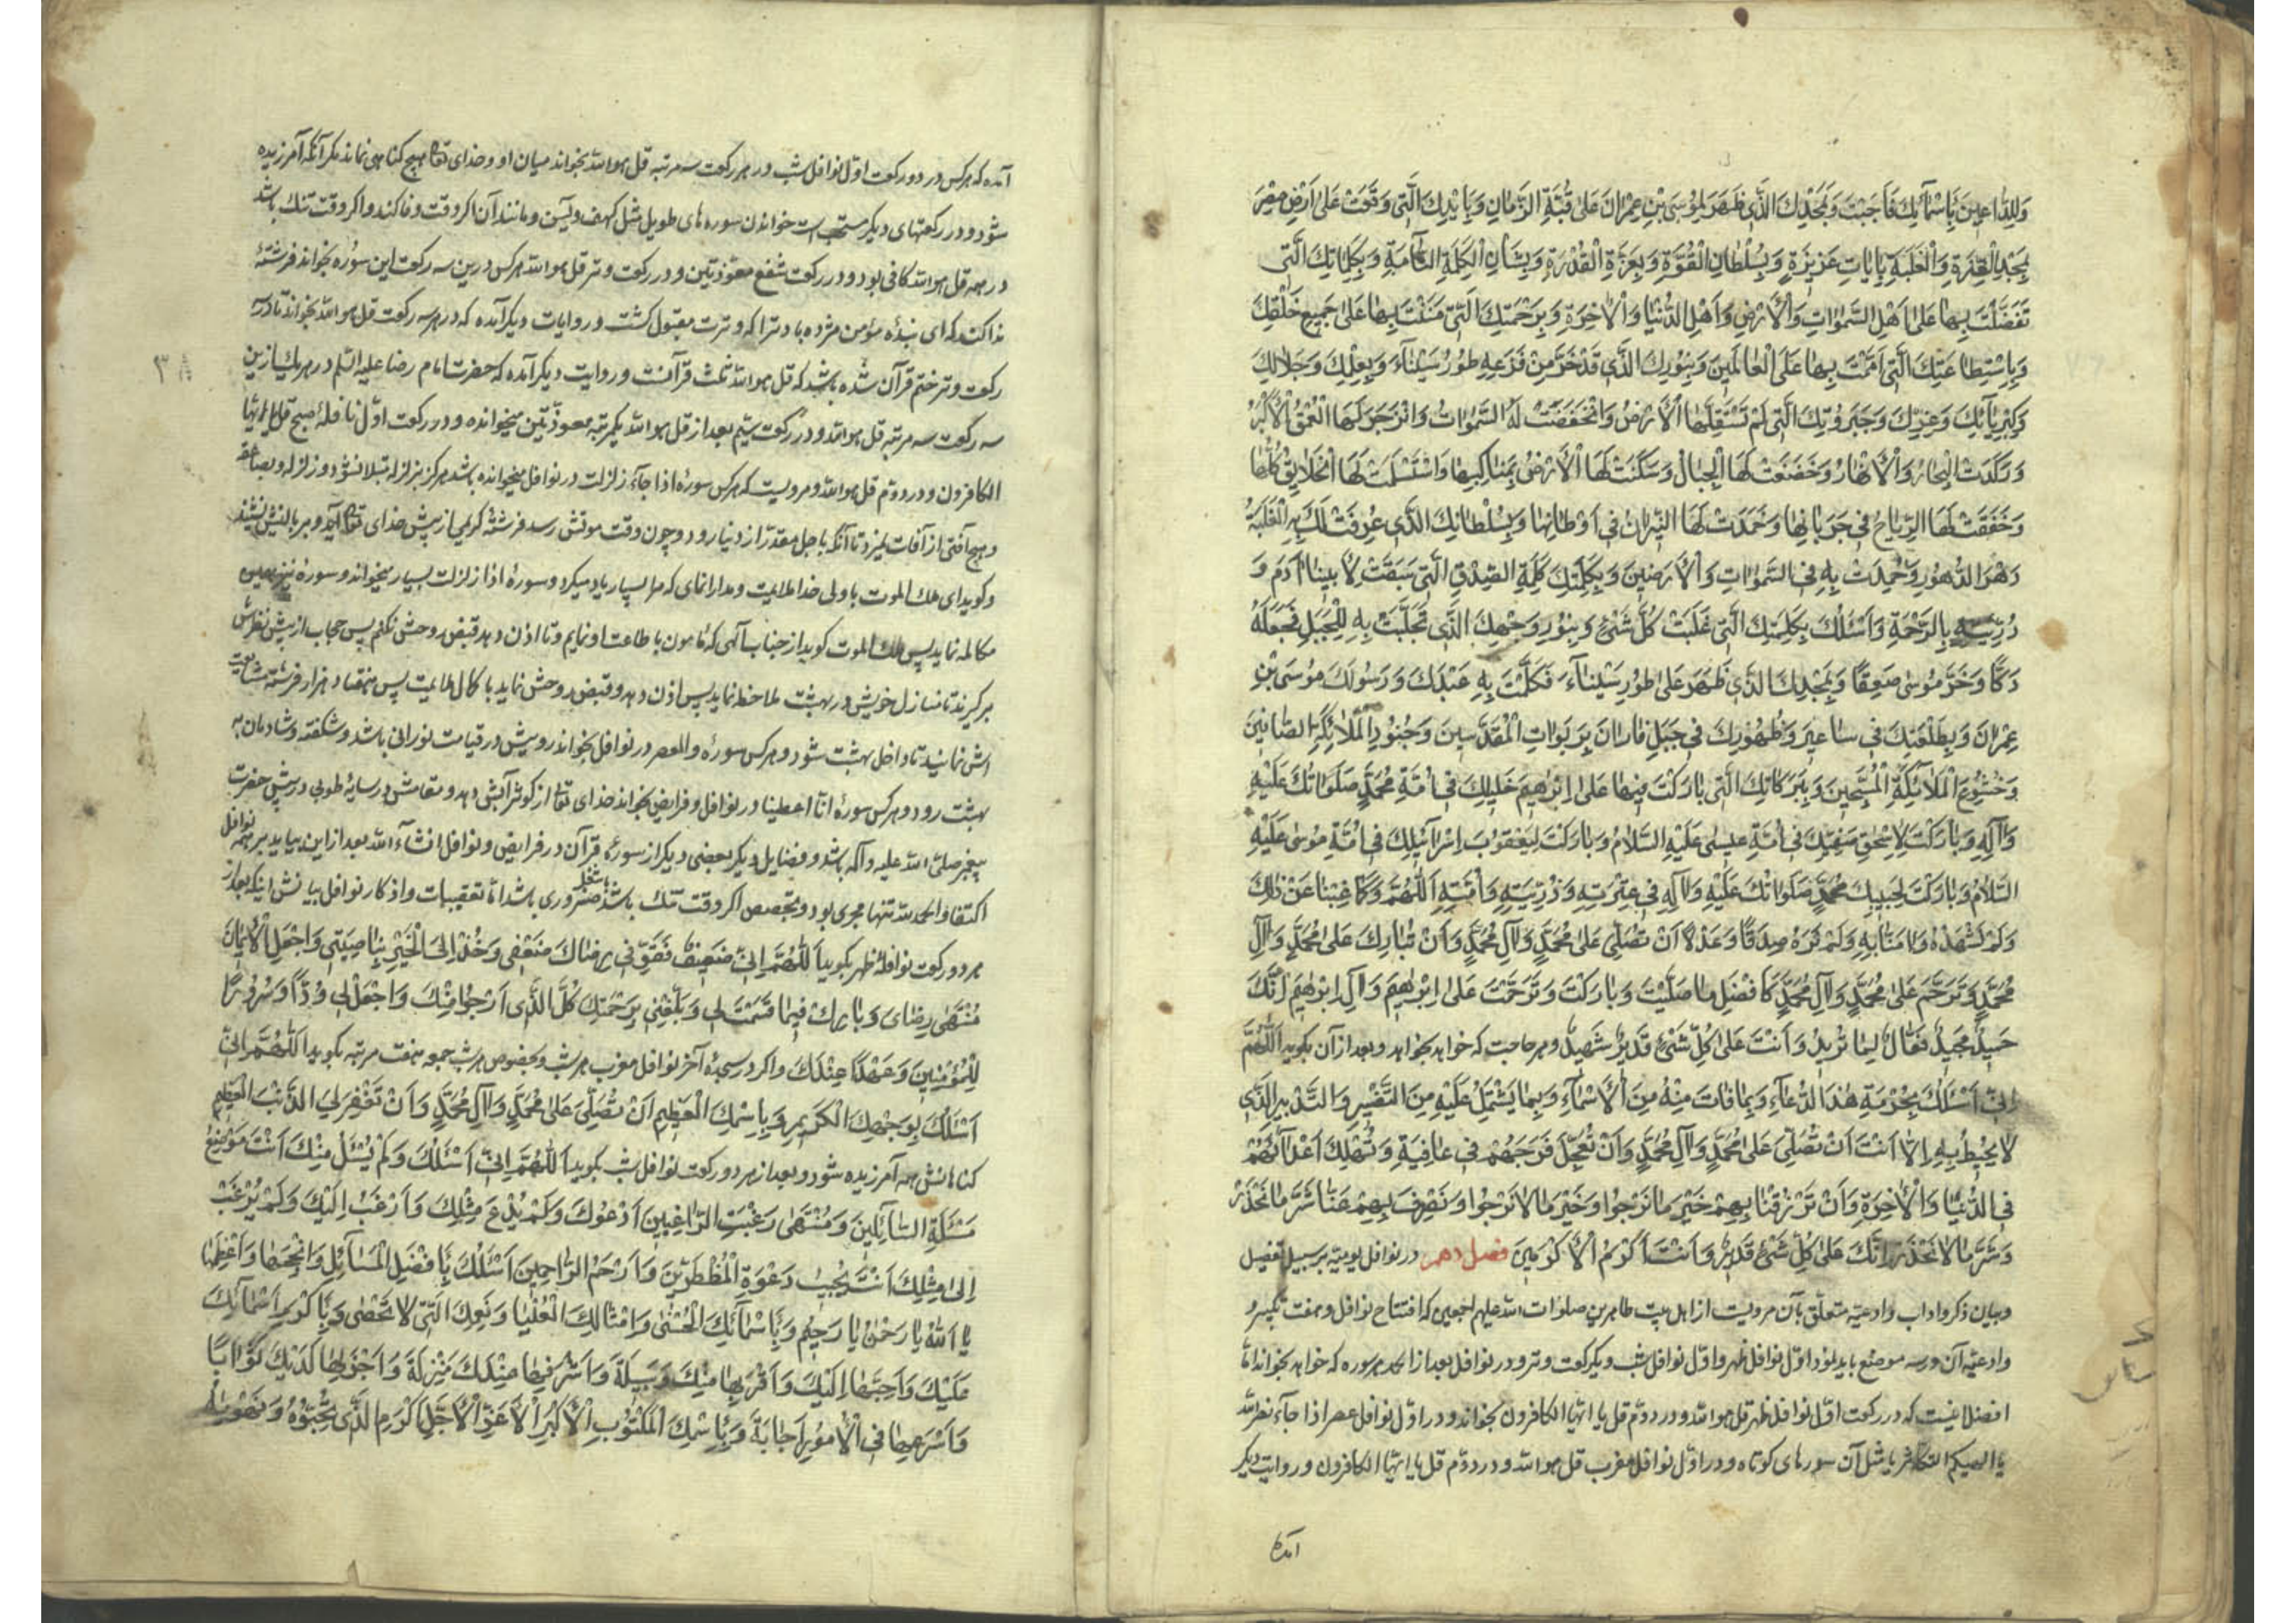 وَلِلدّاعِينَ بِاَسْمآئِكَ فَاَجَبْتَ وَبِمَجْدِكَ الَّذى ظَهَرَ لِمُوسَى بْنِ عِمْرانَ عَلى قُبَّةِ الزَّمانِ وَبِاٰياتِكَ الَّتى وَقَعَتْ عَلى اَرْضِ مِصْرَ
بِمَجْدِ الْعِزَّةِ وَالْغَلَبَةِ بِاٰياتٍ عَزيزَةٍ وَبِسُلْطانِ الْقُوَّةِ وَبِعِزَّةِ الْقُدْرَةِ وَبِشَاْنِ الْكَلِمَةِ التّآمَّةِ وَبِكَلِماتِكَ الَّتى
تَفَضَّلْتَ بِها عَلى اَهْلِ السَّمٰواتِ وَالْاَرْضِ وَاَهْلِ الدُّنْيا وَالْاٰخِرَةِ وَبِرَحْمَتِكَ الَّتى مَنَنْتَ بِها عَلى جَميعِ خَلْقِكَ
وَبِاسْتِطاعَتِكَ الَّتى اَقَمْتَ بِها عَلَى الْعالَمينَ وَبِنُورِكَ الَّذى قَدْ خَرَّ مِنْ فَزَعِهِ طُورُ سَيْنآءَ وَبِعِلْمِكَ وَجَلالِكَ
وَكِبْرِيآئِكَ وَعِزَّتِكَ وَجَبَرُوتِكَ الَّتى لَمْ تَسْتَقِلَّهَا الْاَرْضُ وَانْخَفَضَتْ لَهَا السَّمٰواتُ وَانْزَجَرَ لَهَا الْعُمْقُ الْاَكْبَرُ
وَرَكَدَتْ لَهَا الْبِحارُ وَالْاَنْهارُ وَخَضَعَتْ لَهَا الْجِبالُ وَسَكَنَتْ لَهَا الْاَرْضُ بِمَناكِبِها وَاسْتَسْلَمَتْ لَهَا الْخَلايِقُ كُلُّها
وَخَفَقَتْ لَهَا الرِّياحُ فى جَرَيانِها وَخَمَدَتْ لَهَا النّيرانُ فى اَوْطانِها وَبِسُلْطانِكَ الَّذى عُرِفَتْ لَكَ بِهِ الْغَلَبَةُ
دَهْرَ الدُّهُورِ وَحُمِدْتَ بِهِ فِى السَّمٰواتِ وَالْاَرَضينَ وَبِكَلِمَتِكَ كَلِمَةِ الصِّدْقِ الَّتى سَبَقَتْ لِاَبينا اٰدَمَ وَ
ذُرِّيَّتِهِ بِالرَّحْمَةِ وَاَسْئَلُكَ بِكَلِمَتِكَ الَّتى غَلَبَتْ كُلَّ شَىْءٍ وَبِنُورِ وَجْهِكَ الَّذى تَجَلَّيْتَ بِهِ لِلْجَبَلِ فَجَعَلْتَهُ
دَكًّا وَخَرَّ مُوسى صَعِقًا وَبِمَجْدِكَ الَّذى ظَهَرَ عَلى طُورِ سَيْنآءَ فَكَلَّمْتَ بِهِ عَبْدَكَ وَرَسُولَكَ مُوسَى بْنَ
عِمْرانَ وَبِطَلْعَتِكَ فى ساعيرَ وَظُهُورِكَ فى جَبَلِ فارانَ بِرَبَواتِ الْمُقَدَّسينَ وَجُنُودِ الْمَلآئِكَةِ الصّآفّينَ
وَخُشُوعِ الْمَلآئِكَةِ الْمُسَبِّحينَ وَبِبَرَكاتِكَ الَّتى بارَكْتَ فيها عَلى اِبْرٰهيمَ خَليلِكَ فى اُمَّةِ مُحَمَّدٍ صَلَواتُكَ عَلَيْهِ
وَاٰلِهِ وَبارَكْتَ لِاِسْحٰقَ صَفِيِّكَ فى اُمَّةِ عيسى عَلَيْهِ السَّلامُ وَبارَكْتَ لِيَعْقُوبَ اِسْرآئيلِكَ فى اُمَّةِ مُوسى عَلَيْهِ
السَّلامُ وَبارَكْتَ لِحَبيبِكَ مُحَمَّدٍ صَلَواتُكَ عَلَيْهِ وَاٰلِهِ فى عِتْرَتِهِ وَذُرِّيَّتِهِ وَاُمَّتِهِ اَللّٰهُمَّ وَكَما غِبْنا عَنْ ذٰلِكَ
وَلَمْ نَشْهَدْهُ وَاٰمَنّا بِهِ وَلَمْ نَرَهُ صِدْقًا وَعَدْلًا اَنْ تُصَلِّىَ عَلى مُحَمَّدٍ وَاٰلِ مُحَمَّدٍ وَاَنْ تُبارِكَ عَلى مُحَمَّدٍ وَاٰلِ
مُحَمَّدٍ وَتَرَحَّمَ عَلى مُحَمَّدٍ وَاٰلِ مُحَمَّدٍ كَاَفْضَلِ ما صَلَّيْتَ وَبارَكْتَ وَتَرَحَّمْتَ عَلى اِبْرٰهيمَ وَاٰلِ اِبْرٰهيمَ اِنَّكَ
حَميدٌ مَجيدٌ فَعّالٌ لِما تُريدُ وَاَنْتَ عَلى كُلِّ شَىْءٍ قَديرٌ شَهيدٌ وهر حاجت كه خواهد بخواهد وبعد از آن بكويد اَللّٰهُمَّ
اِنّى اَسْئَلُكَ بِحُرْمَةِ هٰذَا الدُّعآءِ وَبِما فاتَ مِنْهُ مِنَ الْاَسْمآءِ وَبِما يَشْتَمِلُ عَلَيْهِ مِنَ التَّفْسيرِ وَالتَّدْبيرِ الَّذى
لا يُحيطُ بِهِ اِلّا اَنْتَ اَنْ تُصَلِّىَ عَلى مُحَمَّدٍ وَاٰلِ مُحَمَّدٍ وَاَنْ تُعَجِّلَ فَرَجَهُمْ فى عافِيَةٍ وَتُهْلِكَ اَعْدآئَهُمْ
فِى الدُّنْيا وَالْاٰخِرَةِ وَاَنْ تَرْزُقَنا بِهِمْ خَيْرَ ما نَرْجُوا وَخَيْرَ ما لا نَرْجُوا وَتَصْرِفَ بِهِمْ عَنّا شَرَّ ما نَحْذَرُ
وَشَرَّ ما لا نَحْذَرُ اِنَّكَ عَلى كُلِّ شَىْءٍ قَديرٌ وَاَنْتَ اَكْرَمُ الْاَكْرَمينَ فصل دهم در نوافل يوميه بر سبيل تفصيل
وبيان ذكر واداب وادعيه متعلق بآن مرويست از اهل بيت طاهرين صلوات الله عليهم اجمعين كه افتتاح نوافل وهفت تكبير و
وادعيه آن در سه موضع بايد اول نوافل ظهر واول نوافل شب ويكركعت وتر ودر نوافل بعد از الحمد هر سوره كه خواهد بخواند اما
افضل اينست كه در ركعت اول نوافل ظهر قل هو الله ودر دوم قل يا ايها الكافرون بخواند ودر اول نوافل عصر اذا جآء نصر الله
يا الهيكم التكاثر يا مثل آن سورهاى كوتاه ودر اول نوافل مغرب قل هو الله ودر دوم قل يا ايها الكافرون وروايت ديكر
آمده
آمده كه هركس در دو ركعت اول نوافل شب در هر ركعت سه مرتبه قل هو الله بخواند ميان او وخداى تعا هيچ كناهى نماند مكر آنكه آمرزيده
شود ودر ركعتهاى ديكر مستحب است خواندن سوره هاى طويل مثل كهف ويس ومانند آن اكر وقت وفا كند واكر وقت تنك باشد
در همه قل هو الله كافى بود ودر ركعت شفع معوذتين ودر ركعت وتر قل هو الله هركس درين سه ركعت اين سوره بخواند فرشتۀ
ندا كند كه اى بنده مؤمن مژده باد ترا كه وترت مقبول كشت وروايات ديكر آمده كه در هر سه ركعت قل هو الله بخواند تا در سه
ركعت وتر ختم قرآن شده باشد كه قل هو الله ثلث قرآنست وروايت ديكر آمده كه حضرت امام رضا عليه السلم در هر يك ازين
سه ركعت سه مرتبه قل هو الله ودر ركعت سيم بعد از قل هو الله يكمرتبه معوذتين ميخوانده ودر ركعت اول نافلۀ صبح قل يا ايها
الكافرون ودر دوم قل هو الله ومرويست كه هركس سورۀ اذا زلزلت در نوافل ميخوانده باشد هركز بزلزله مبتلا نشود وزلزله وبصاعقه
وهيچ آفتى از آفات نميرد تا آنكه باجل مقدر از دنيا رود وچون وقت موتش رسد فرشتۀ كريمى از پيش خداى تعا آيد وبر بالينش نشيند
وكويد اى ملك الموت با ولى خدا ملايمت ومدارا نماى كه مرا بسيار ياد ميكرد وسورۀ اذا زلزلت بسيار ميخواند وسورۀ نيز همين
مكالمه نمايد پس ملك الموت كويد از جناب آلهى كه مامون باطاعت او نمايم وتا اذن دهد قبض روحش نكنم پس حجاب از پيش نظرش
بركيرند تا منازل خويش در بهشت ملاحظه نمايد پس اذن دهد وقبض روحش نمايد با كمال ملايمت پس هفتاد هزار فرشته مشايعت
اش نمايند تا داخل بهشت شود وهركس سورۀ والعصر در نوافل بخواند رويش در قيامت نورانى باشد وشكفته وشادمان به
بهشت رود وهركس سورۀ انا اعطينا در نوافل وفرايض بخواند خداى تعا از كوثر آبش دهد ومقامش در سايۀ طوبى در پيش حضرت
پيغمبر صلى الله عليه وآله باشد وفضايل ديكر بعضى ديكر از سورۀ قرآن در فرايض ونوافل انشآء الله بعد از اين بيايد بر همه نوافل
اكتفا والحمد لله تنها مجزى بود وتخصيص اكر وقت تنك باشد يا شغل ضرورى باشد اما تعقيبات واذكار نوافل بيانش اينكه بعد از
هر دو ركعت نوافل ظهر بكويد اَللّٰهُمَّ اِنّى ضَعيفٌ فَقَوِّ فى رِضاكَ ضَعْفى وَخُذْ اِلَى الْخَيْرِ بِناصِيَتى وَاجْعَلِ الْايمانَ
مُنْتَهى رِضاىَ وَبارِكْ فيما قَسَمْتَ لى وَبَلِّغْنى بِرَحْمَتِكَ كُلَّ الَّذى اَرْجُوا مِنْكَ وَاجْعَلْ لى وُدًّا وَسُرُورًا
لِلْمُؤْمِنينَ وَعَهْدًا عِنْدَكَ واكر در سجدۀ آخر نوافل مغرب هر شب وبخصوص هر شب جمعه هفت مرتبه بكويد اَللّٰهُمَّ اِنّى
اَسْئَلُكَ بِوَجْهِكَ الْكَريمِ وَبِاسْمِكَ الْعَظيمِ اَنْ تُصَلِّىَ عَلى مُحَمَّدٍ وَاٰلِ مُحَمَّدٍ وَاَنْ تَغْفِرَ لِىَ الذَّنْبَ الْعَظيمَ
كناهانش همه آمرزيده شود وبعد از هر دو ركعت نوافل شب بكويد اَللّٰهُمَّ اِنّى اَسْئَلُكَ وَلَمْ يُسْئَلْ مِثْلُكَ اَنْتَ مَوْضِعُ
مَسْئَلَةِ السّآئِلينَ وَمُنْتَهى رَغْبَةِ الرّاغِبينَ اَدْعُوكَ وَلَمْ يُدْعَ مِثْلُكَ وَاَرْغَبُ اِلَيْكَ وَلَمْ يُرْغَبْ
اِلى مِثْلِكَ اَنْتَ مُجيبُ دَعْوَةِ الْمُضْطَرّينَ وَاَرْحَمُ الرّاحِمينَ اَسْئَلُكَ بِاَفْضَلِ الْمَسآئِلِ وَاَنْجَحِها وَاَعْظَمِها
يا اَللّٰهُ يا رَحْمٰنُ يا رَحيمُ وَبِاَسْمآئِكَ الْحُسْنى وَاَمْثالِكَ الْعُلْيا وَنِعَمِكَ الَّتى لا تُحْصى وَبِاَكْرَمِ اَسْمآئِكَ
عَلَيْكَ وَاَحَبِّها اِلَيْكَ وَاَقْرَبِها مِنْكَ وَسيلَةً وَاَشْرَفِها عِنْدَكَ مَنْزِلَةً وَاَجْزَلِها لَدَيْكَ ثَوابًا
وَاَسْرَعِها فِى الْاُمُورِ اِجابَةً وَبِاسْمِكَ الْمَكْتُوبِ الْاَكْبَرِ الْاَعَزِّ الْاَجَلِّ الْاَكْرَمِ الَّذى تُحِبُّهُ وَتَهْويهُ